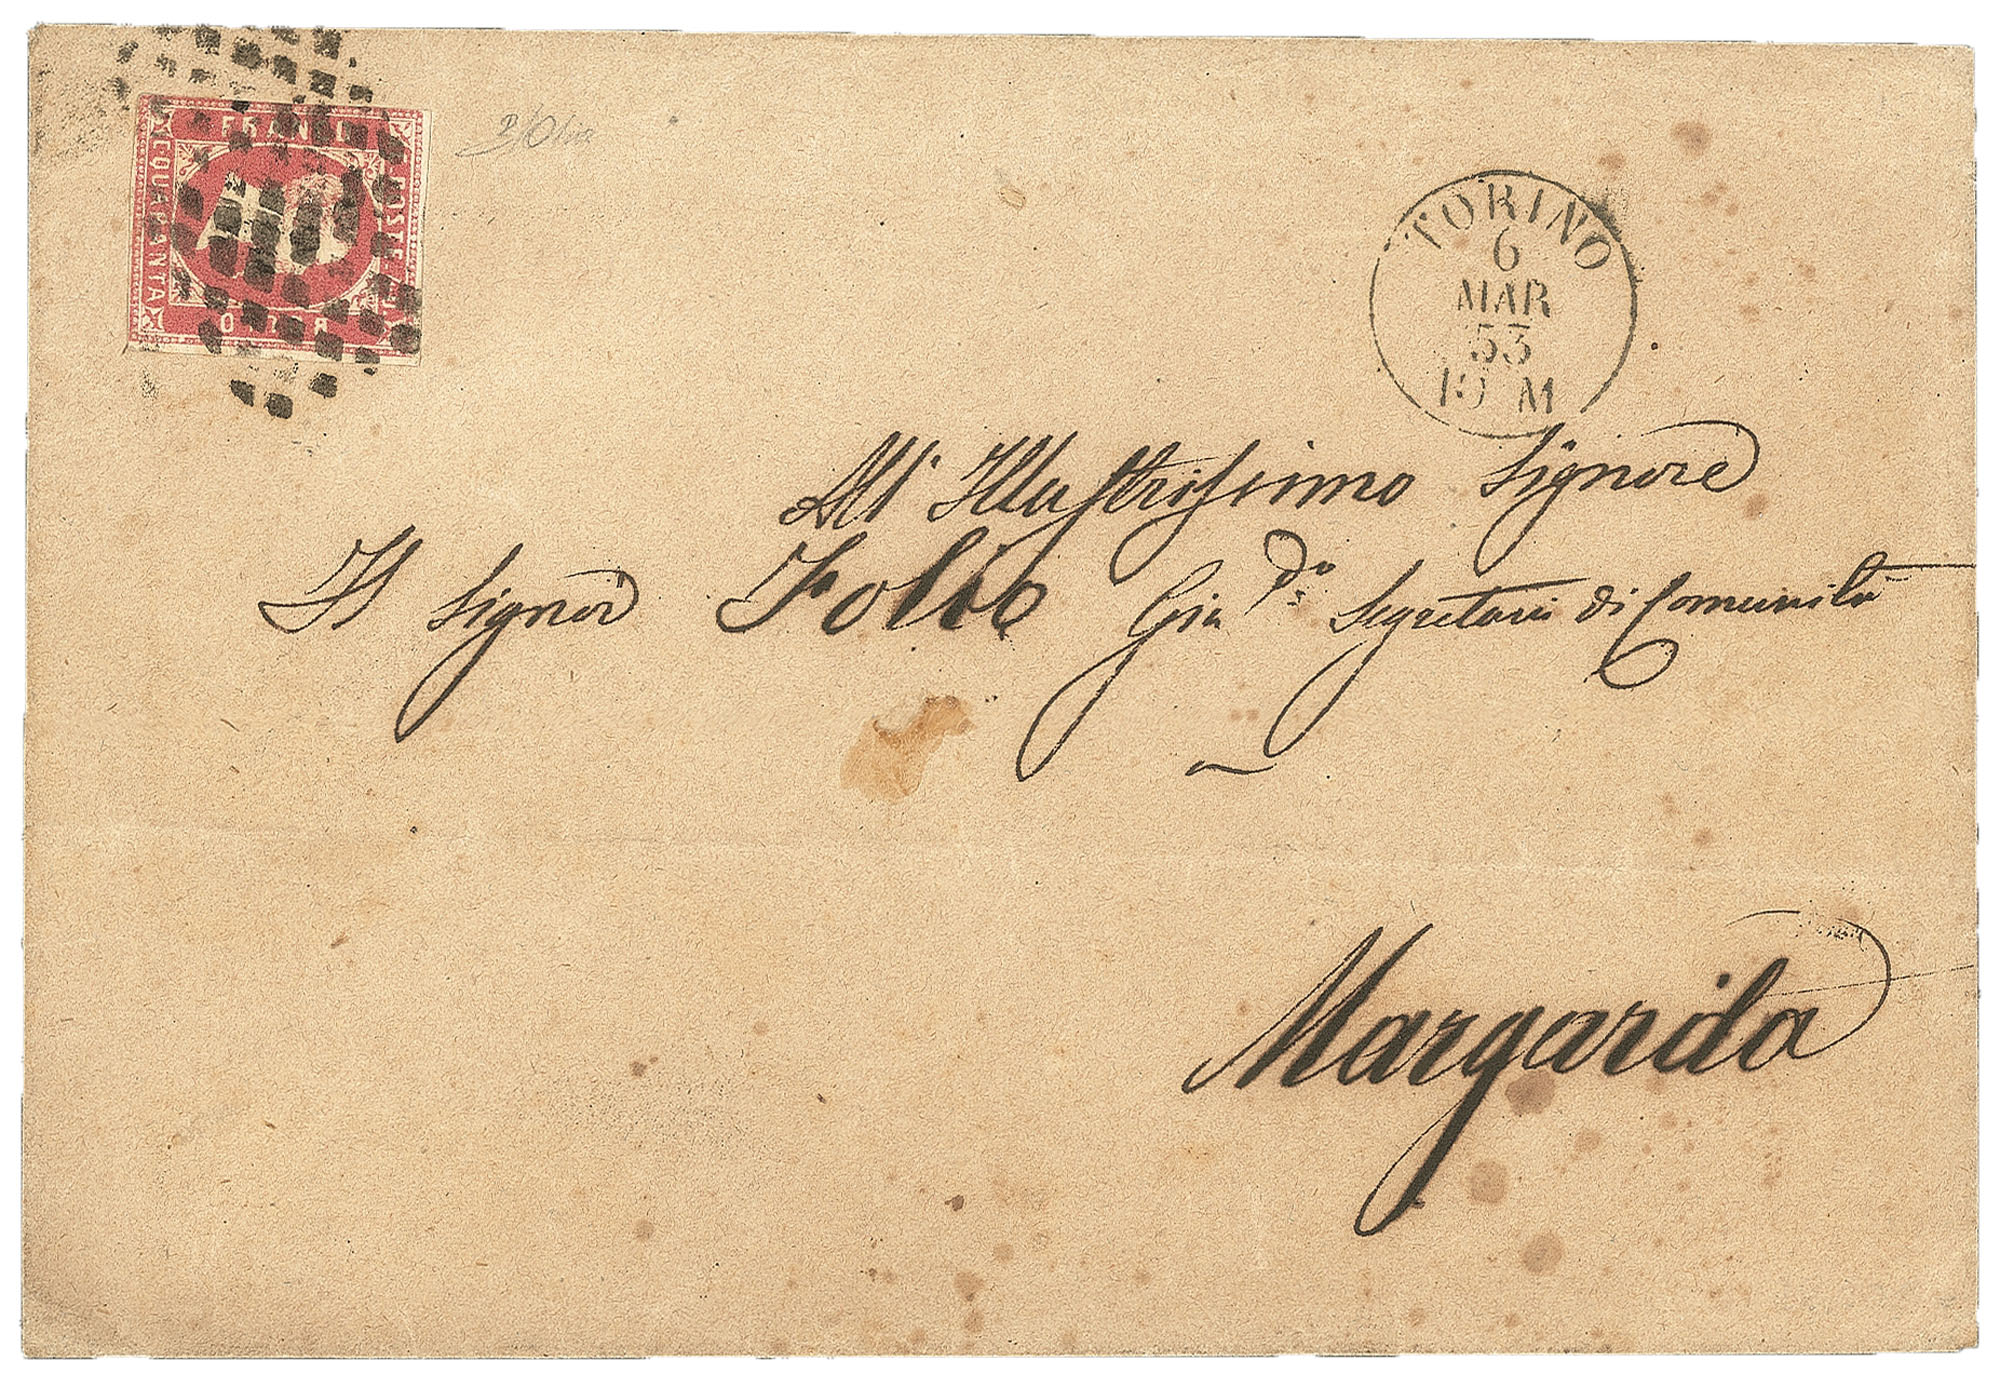 FRANCO
C. QUARANTA
POSTE
TORINO
6
MAR
53
10 M
All' Illustrissimo Signore
Il Signor Folio Gia Segretario di Comunità
Margarita